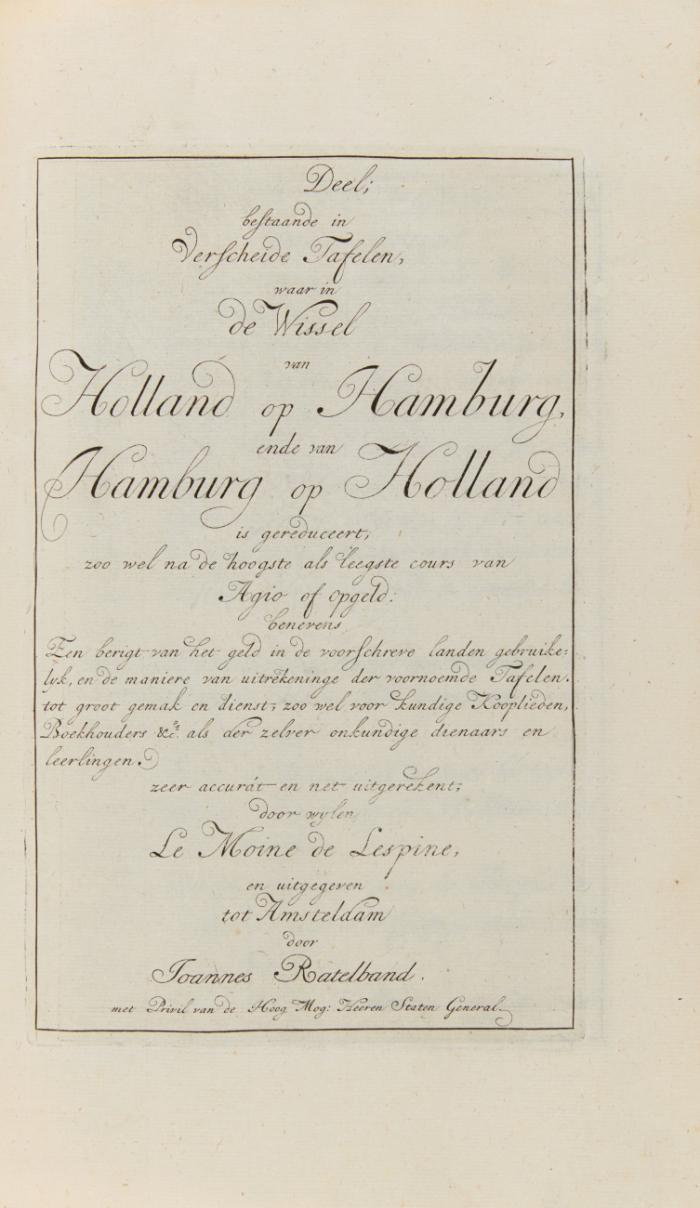 Deel;
bestaande in
Verscheide Tafelen,
waar in
de Wissel
van
Holland op Hamburg,
ende van
Hamburg op Holland
is gereduceert,
zoo wel na de hoogste als leegste cours van
Agio of opgeld:
benevens
Een berigt van het geld in de voorschreve landen gebruike-
lyk, en de maniere van uitrekeninge der voornoemde Tafelen.
tot groot gemak en dienst; zoo wel voor kundige Kooplieden,
Boekhouders &c.ª als der zelver onkundige dienaars en
leerlingen.
zeer accurat en net uitgerekent;
door wylen
Le Moine de Lespine,
en uitgegeven
tot Amsteldam
door
Joannes Ratelband.
met Privil van de Hoog Mog: Heeren Staten General.